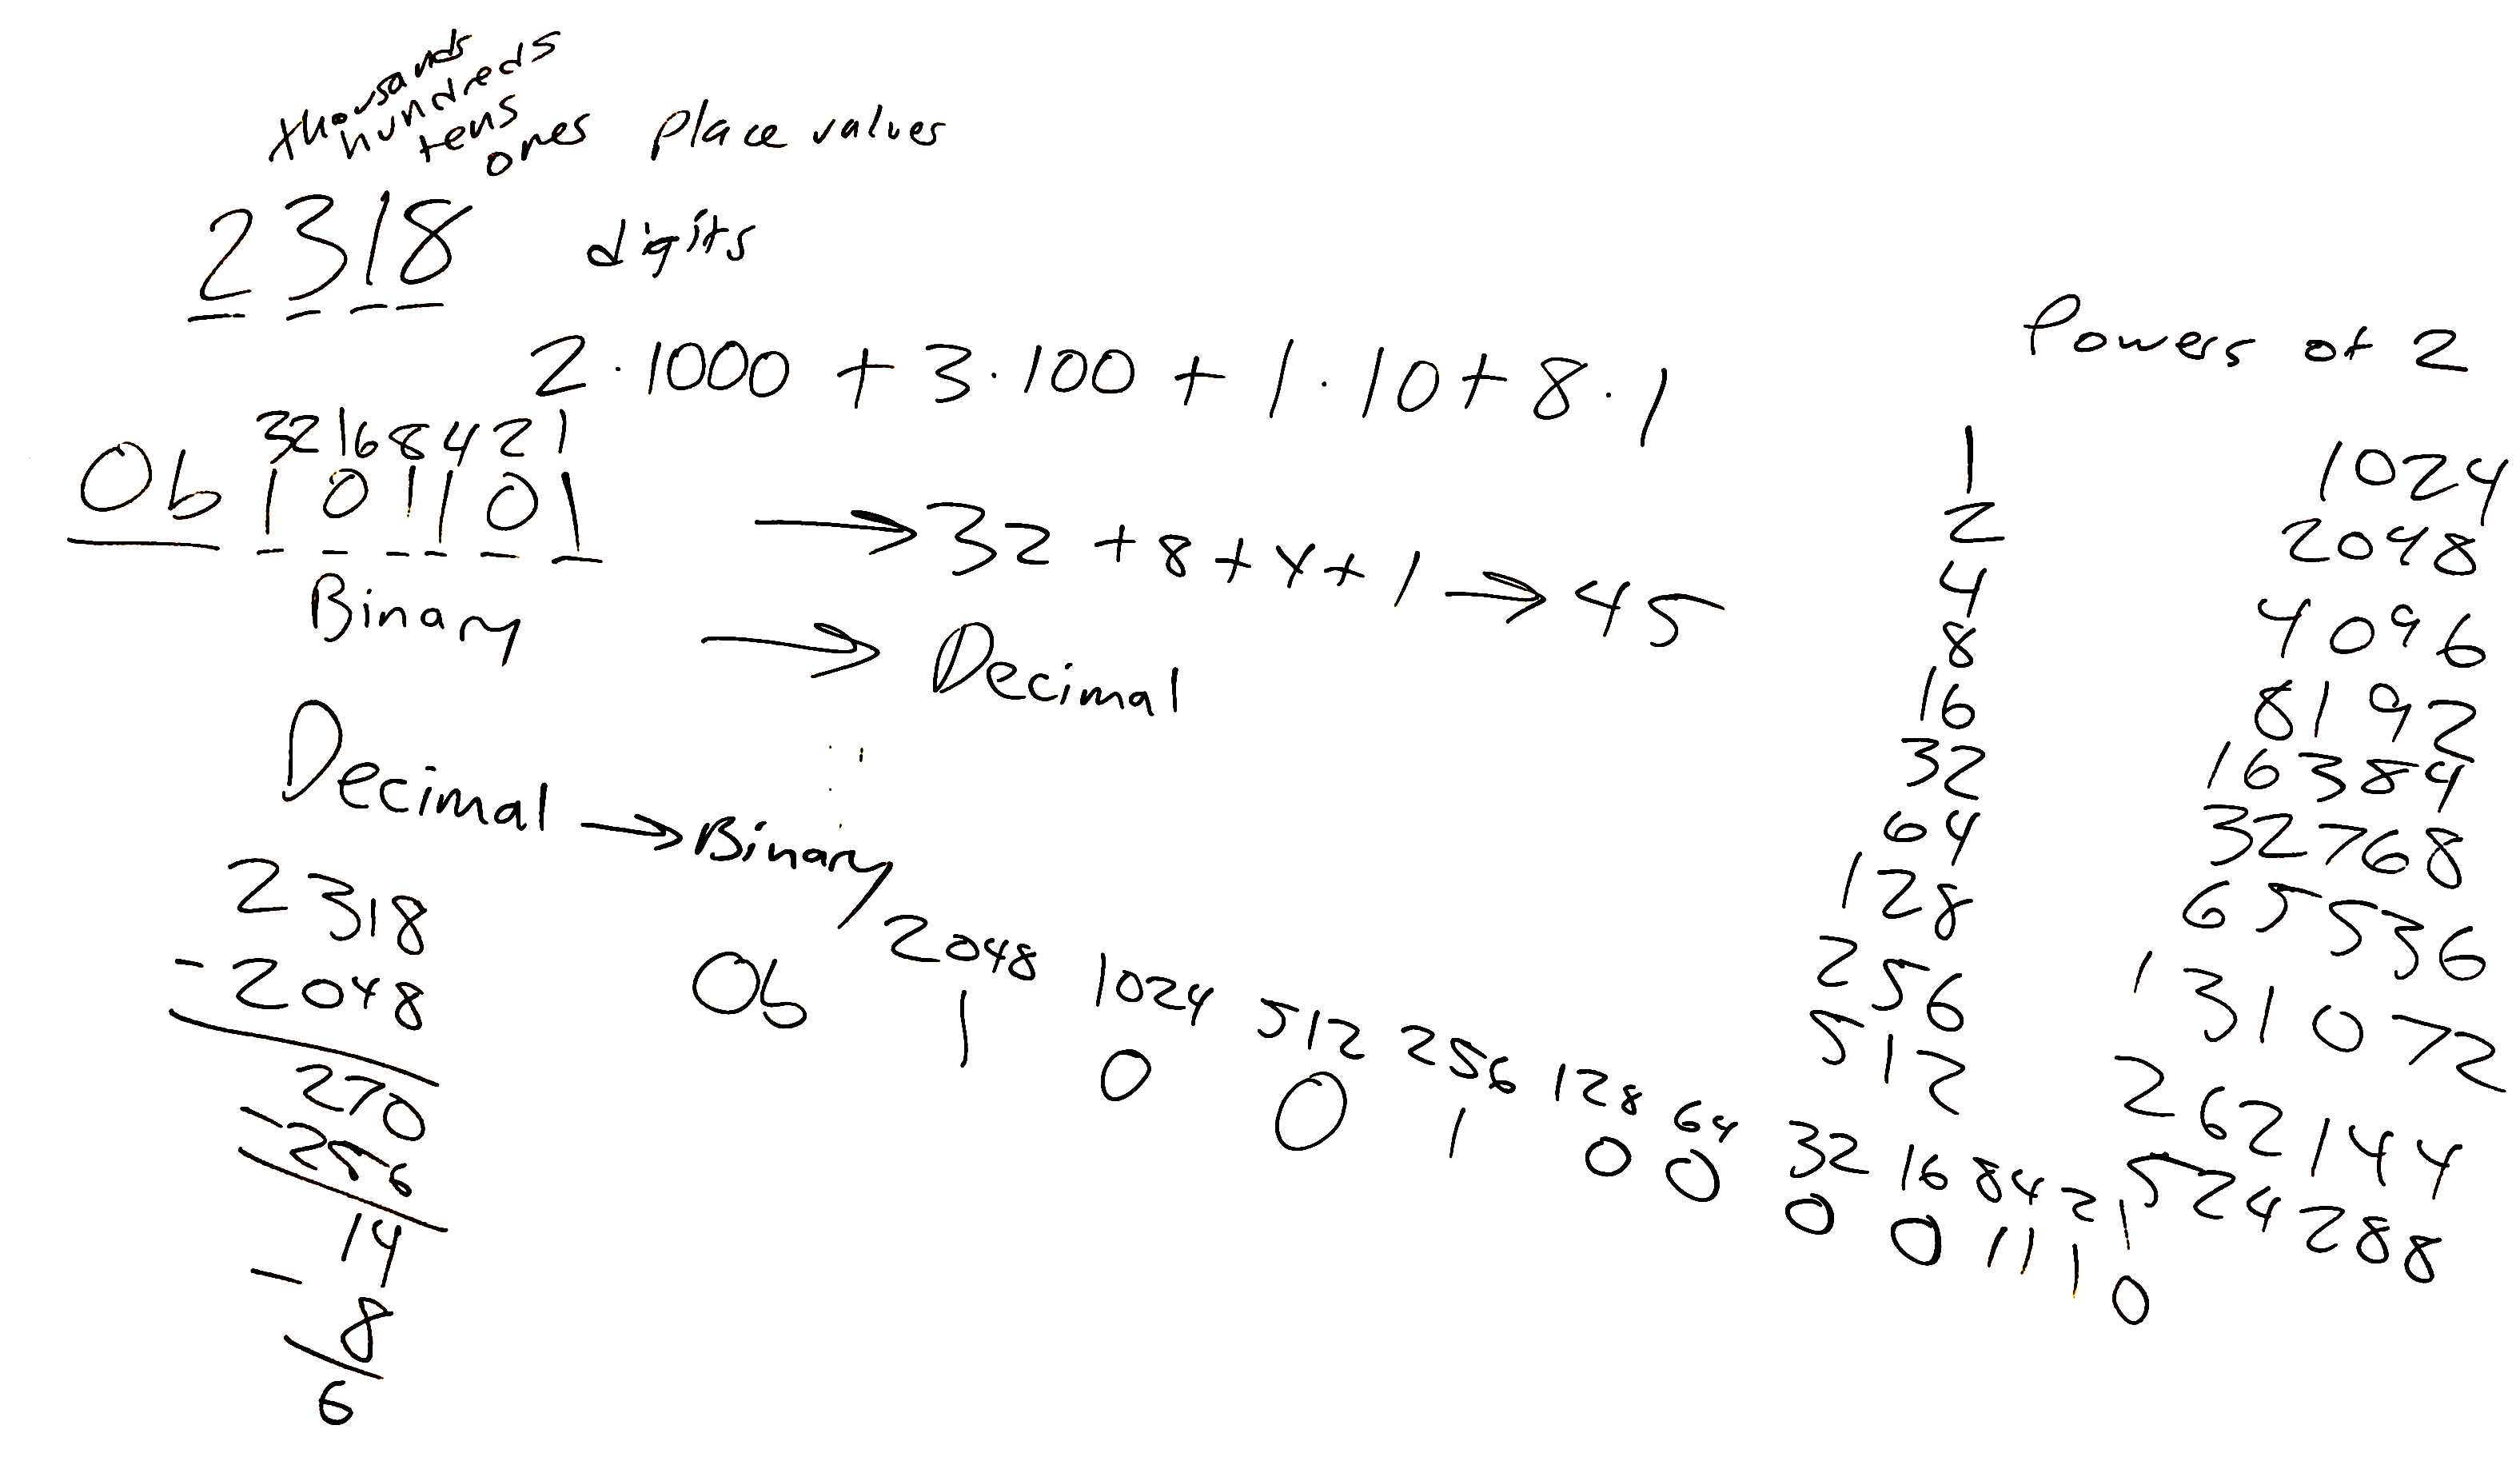 thousands
hundreds
tens
ones place values
2318 digits
2·1000 + 3·100 + 1·10 + 8·1
32 16 8 4 2 1
0b 1 0 1 1 0 1 → 32 + 8 + 4 + 1 → 45
Binary → Decimal
Decimal → Binary
2318
- 2048
270
- 256
14
- 8
6
2048 1024 512 256 128 64 32 16 8 4 2 1
0b 1 0 0 1 0 0 0 0 1 1 1 0
Powers of 2
1
2
4
8
16
32
64
128
256
512
1024
2048
4096
8192
16384
32768
65536
131072
262144
524288